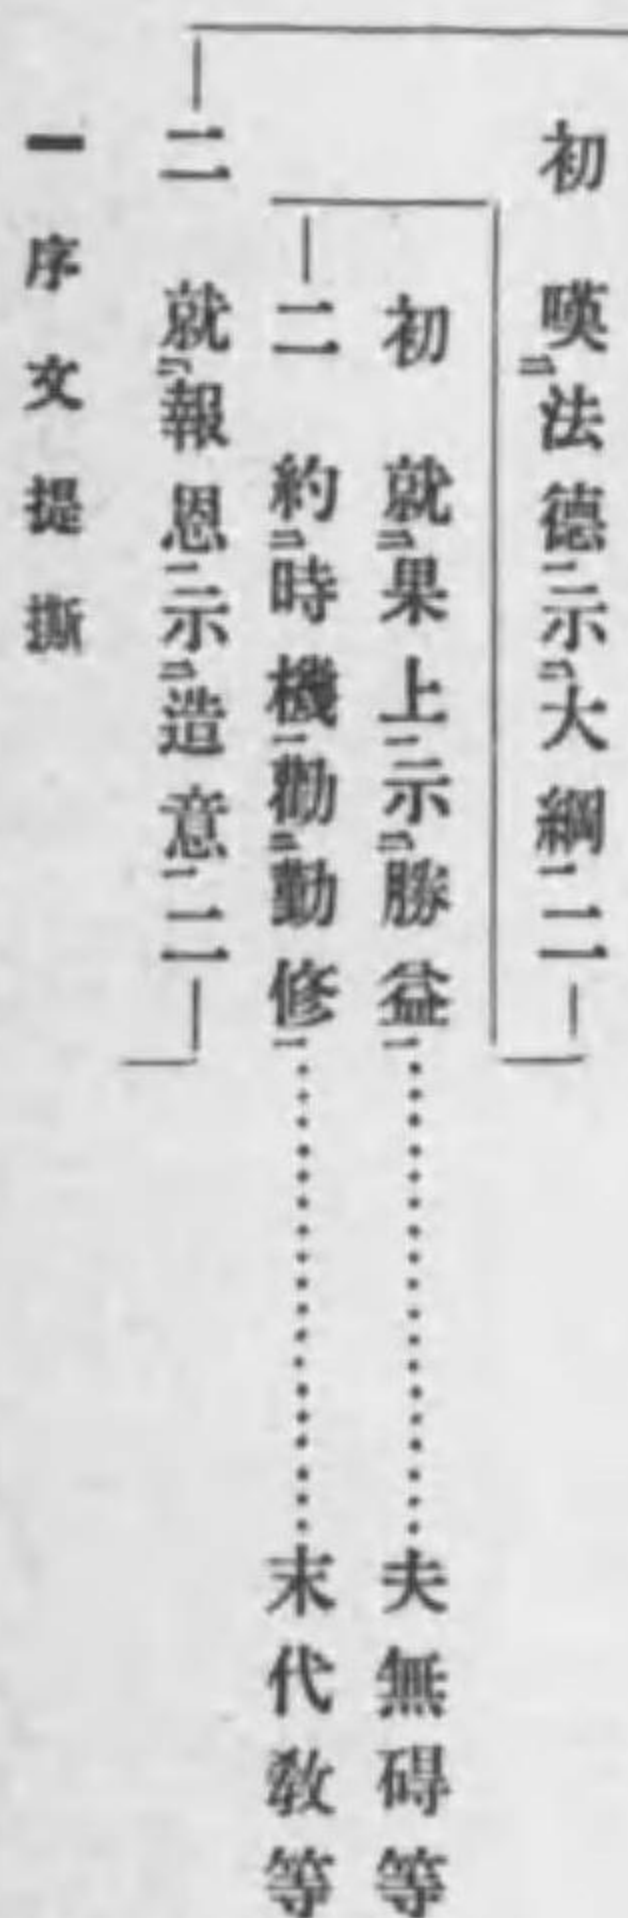 初 嘆法德示大綱二
初 就果上示勝益……夫無碍等
二 約時機勸勤修……末代敎等
二 就報恩示造意二
一 序文提撕